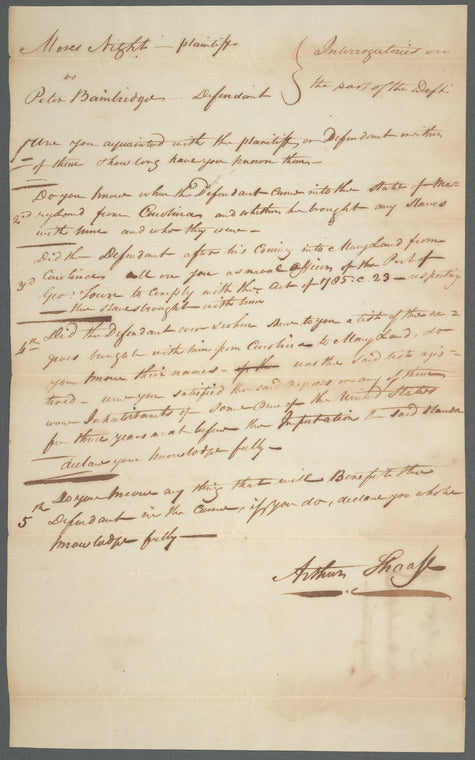 Moses Night — plaintiff
vs
Peter Bambridge Defendant
Interrogatories on
the part of the Deft
1st Are you aquainted with the plantiff or Defendant or either
of them & how long have you known them —
2nd Do you know when the Defendant came into the state of Ma-
ryland from Carolina and whether he brought any slaves
with him and who they were —
3rd Did the Defendant after his Coming into Maryland from
Carolina call on you as naval officer of the Port of
Geo: Town to comply with the Act of 1785 c. 23 — respecting
— the slaves brought with him
4th Did the Defendant ever shew to you a list of the ne-
groes brought with him from Carolina to Maryland, do
you know their names — was the said list regis-
tered — were you satisfied the said negroes or any of them
were Inhabitants of some one of the United States
for three years next before the Importation the said slaves
declare your knowledge fully —
5th Do you know any thing that will Benefit the
Defendant in the Cause, if you do, declare you whole
knowledge fully —
Arthur Shaaff